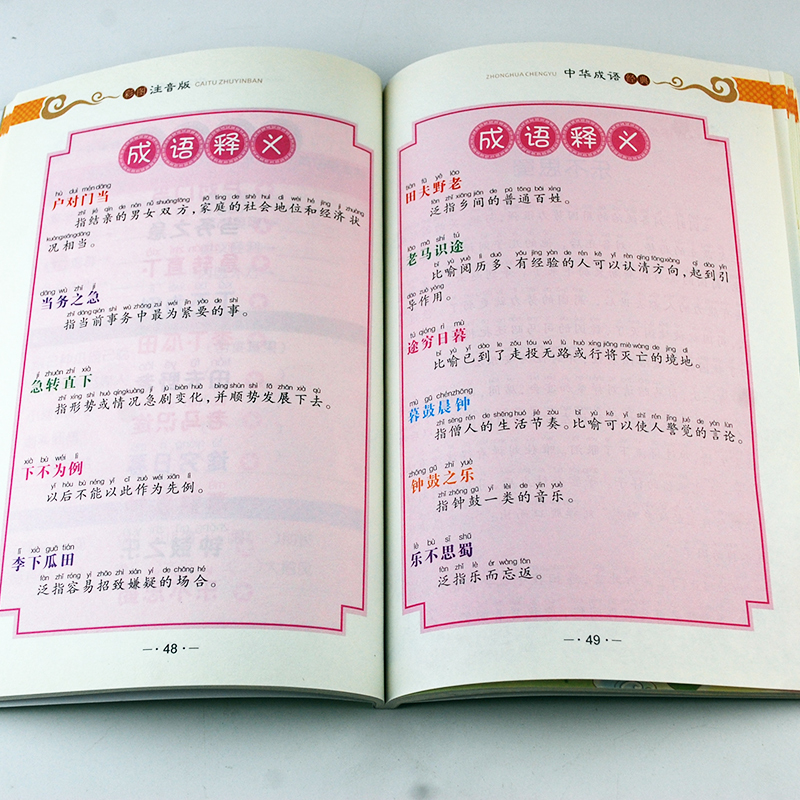 彩图 注音版 CAITU ZHUYINBAN
成语释义
hù duì mén dāng
户对门当
zhǐ jié qīn de nán nǚ shuāng fāng jiā tíng de shè huì dì wèi hé jīng jì zhuàng
指结亲的男女双方，家庭的社会地位和经济状
kuàng xiāng dāng
况相当。
dāng wù zhī jí
当务之急
zhǐ dāng qián shì wù zhōng zuì wéi jǐn yào de shì
指当前事务中最为紧要的事。
jí zhuǎn zhí xià
急转直下
zhǐ xíng shì huò qíng kuàng jí jù biàn huà bìng shùn shì fā zhǎn xià qù
指形势或情况急剧变化，并顺势发展下去。
xià bù wéi lì
下不为例
yǐ hòu bù néng yǐ cǐ zuò wéi xiān lì
以后不能以此作为先例。
lǐ xià guā tián
李下瓜田
fàn zhǐ róng yì zhāo zhì xián yí de chǎng hé
泛指容易招致嫌疑的场合。
48
ZHONGHUA CHENGYU 中华成语 经典
成语释义
tián fū yě lǎo
田夫野老
fàn zhǐ xiāng jiān de pǔ tōng bǎi xìng
泛指乡间的普通百姓。
lǎo mǎ shí tú
老马识途
bǐ yù yuè lì duō yǒu jīng yàn de rén kě yǐ rèn qīng fāng xiàng qǐ dào yǐn
比喻阅历多、有经验的人可以认清方向，起到引
dǎo zuò yòng
导作用。
tú qióng rì mù
途穷日暮
bǐ yù yǐ dào le zǒu tóu wú lù huò xíng jiāng miè wáng de jìng dì
比喻已到了走投无路或行将灭亡的境地。
mù gǔ chén zhōng
暮鼓晨钟
zhǐ sēng rén de shēng huó jié zòu bǐ yù kě yǐ shǐ rén jǐng jué de yán lùn
指僧人的生活节奏。比喻可以使人警觉的言论。
zhōng gǔ zhī yuè
钟鼓之乐
zhǐ zhōng gǔ yī lèi de yīn yuè
指钟鼓一类的音乐。
lè bù sī shǔ
乐不思蜀
fàn zhǐ lè ér wàng fǎn
泛指乐而忘返。
49